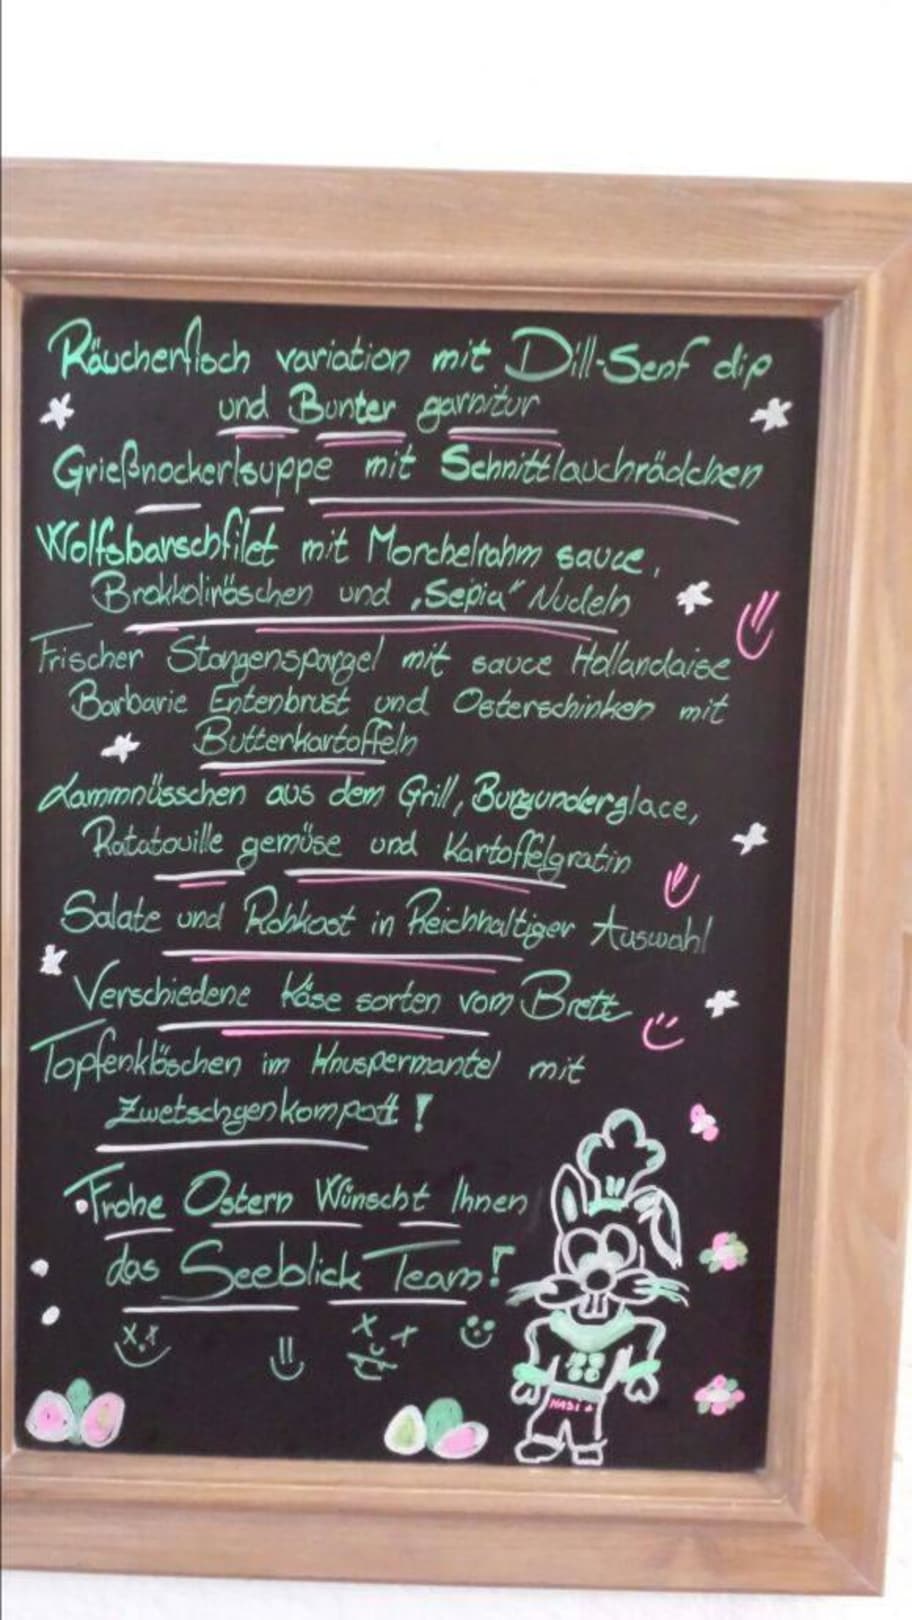 Räucherfisch variation mit Dill-Senf dip
und Bunter garnitur
Grießnockerlsuppe mit Schnittlauchrädchen
Wolfsbarschfilet mit Morchelrahm sauce,
Brokkoliröschen und „Sepia" Nudeln
Frischer Stangenspargel mit sauce Hollandaise
Barbarie Entenbrust und Osterschinken mit
Butterkartoffeln
Lammnüsschen aus dem Grill, Burgunderglace,
Ratatouille gemüse und Kartoffelgratin
Salate und Rohkost in Reichhaltiger Auswahl
Verschiedene Käse sorten vom Brett
Topfenklöschen im Knuspermantel mit
Zwetschgenkompott!
Frohe Ostern Wünscht Ihnen
das Seeblick Team!